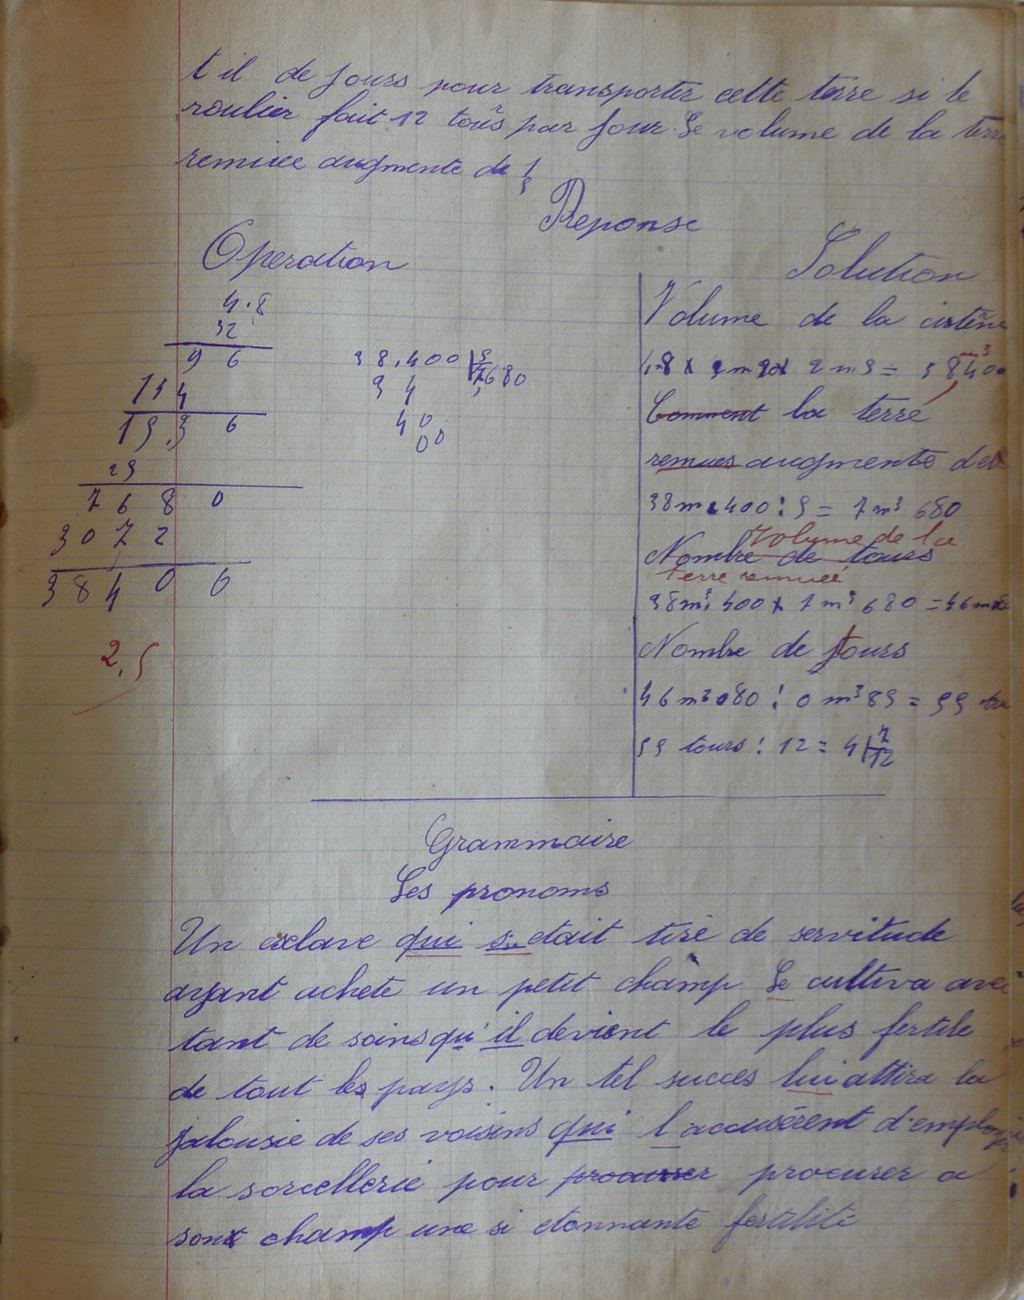 t il de jours pour transporter cette terre si le
roulier fait 12 tours par jour Le volume de la terre
remuee augmente de 1/5
Reponse
Operation
Solution
4.8
32
9 6
1 4 4
1 5.3 6
25
7 6 8 0
3 0 7 2
3 8 4 0 0
38.400 | 5
3 4 7,680
4 0
0 0
2,5
Volume de la
3 840
Comment la terre
remues augmente de
38m 400 : 5 = 7 m3 680
Volume de la
Nombre de tours
terre remuée
38m3 400 + 7 m3 680 = 46 m
Nombre de jours
46 m3 080 : 0 m3 85 = 55
55 tours : 12 = 4 | 7/12
Grammaire
Les pronoms
Un esclave qui s. etait tiré de servitude
ayant acheté un petit champ Le cultiva avec
tant de soins qu'il devient le plus fertile
de tout les pays. Un tel succes lui attira la
jalousie de ses voisins qui l'accusèrent
la sorcellerie pour procurer procurer a
sont champ une si etonnante fertilité